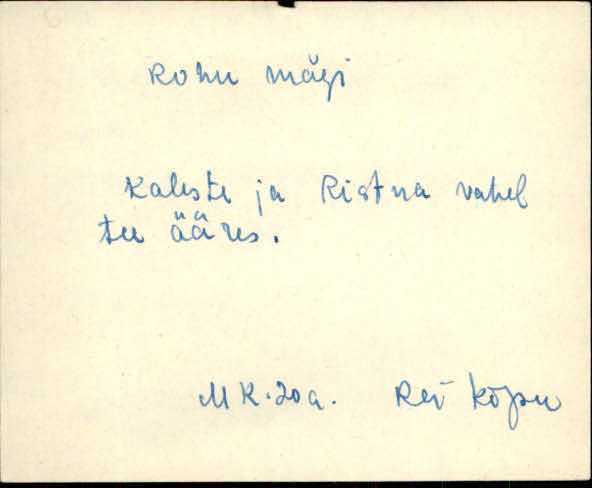 Rohu mägi
Kaleste ja Ristna vahel
tee ääres.
MK. 20 a. Rei Kõpu